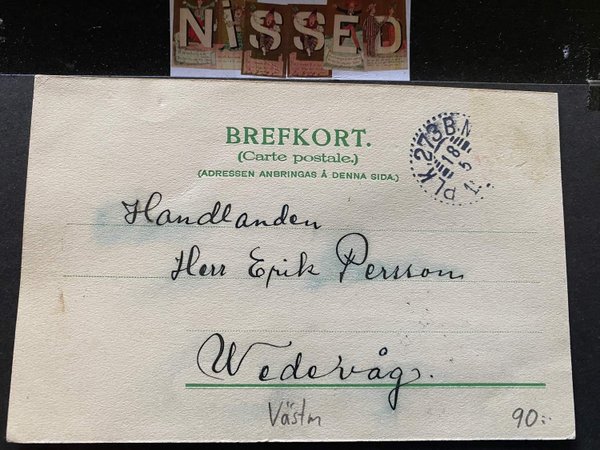 NiSSED
BREFKORT.
(Carte postale.)
(ADRESSEN ANBRINGAS Å DENNA SIDA.)
PLK 273 B.N
18
5
Handlanden
Herr Erik Persson
Wedevåg.
Västm
90:-